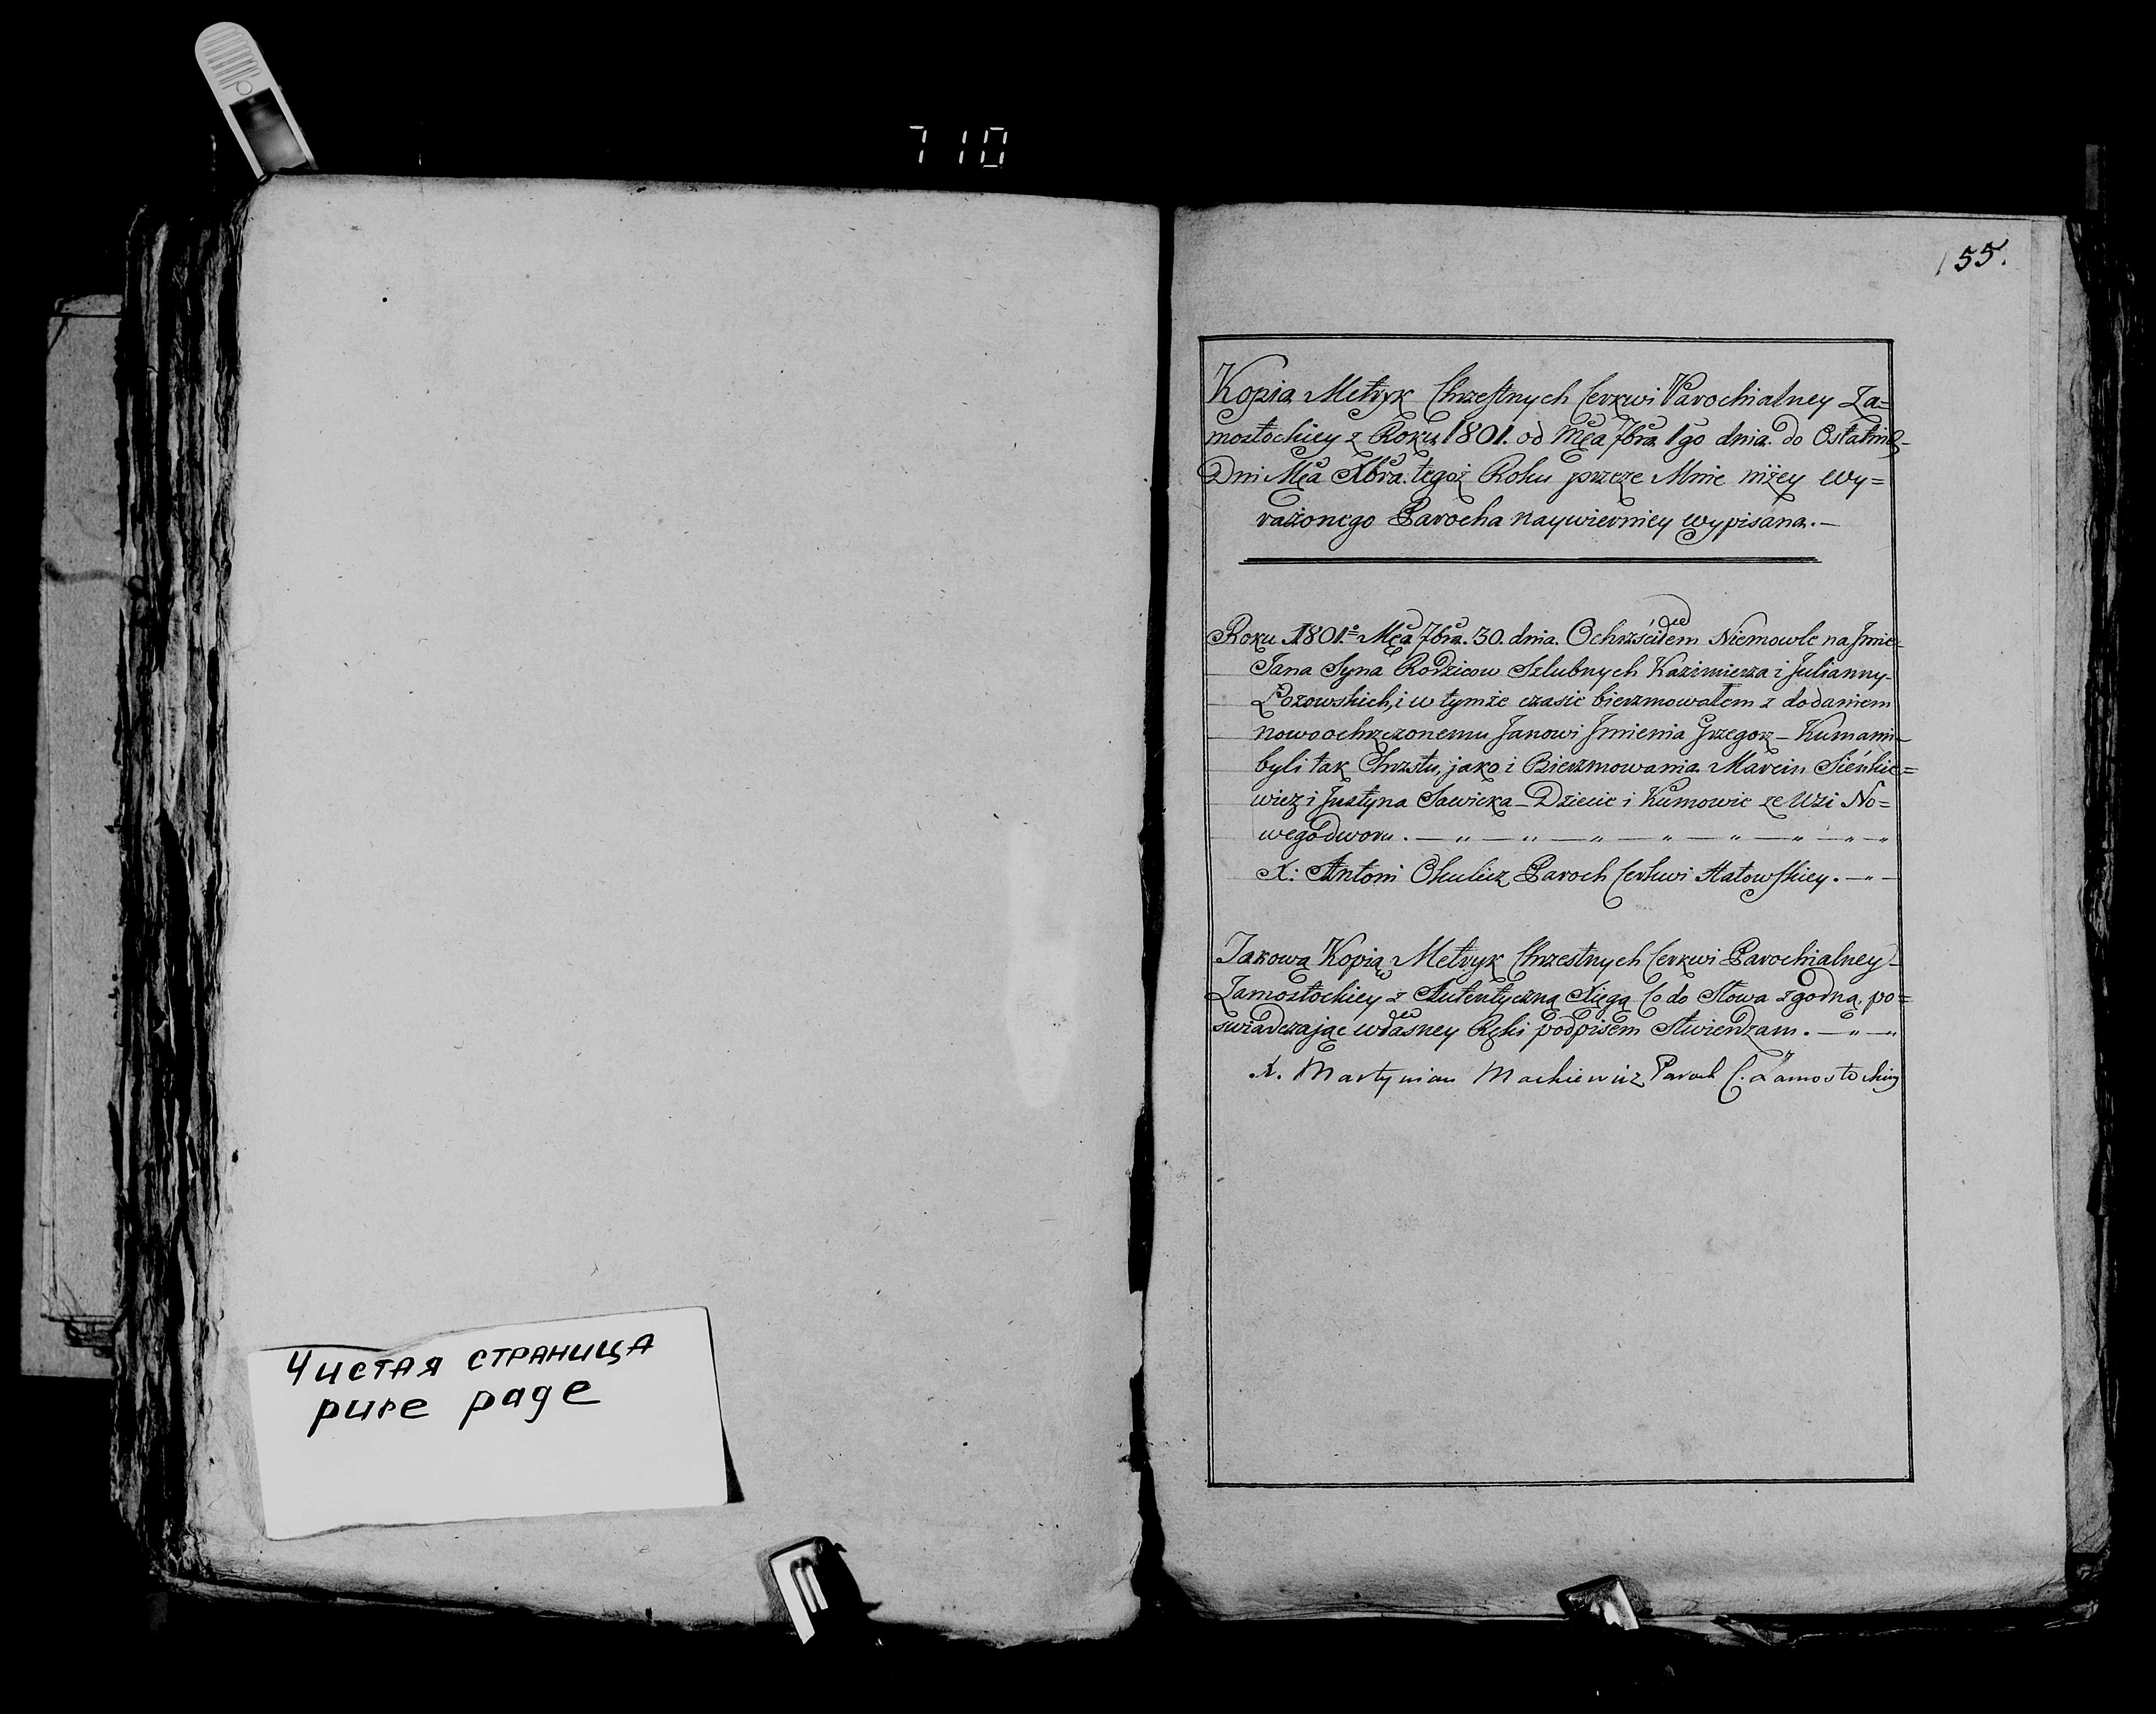 710
155.
Kopia Metryk Chrzestnych Cerkwi Parochialney Za=
mostockiey z Roku 1801. od Mca 7bra 1go dnia. do Ostatnie-
Dni Mca Xbra. tegoż Roku przeze Mnie niżey wy=
rażonego Parocha naywierniey wypisana.—
Roku 1801º Mca 7bra. 30. dnia. Ochrzściłem Niemowle na Jmie-
Jana Syna Rodzicow Szlubnych Kazimierza i Julianny-
Łozowskich, i w tymże czasie bierzmowałem z dodaniem
nowoochrzczonemu Janowi Jmienia Grzegorz – Kumami-
byli tak Chrztu, jako i Bierzmowania Marcin Sieńkie=
wicz i Justyna Sawicka – Dziecie i Kumowie ze Wsi No=
wegodworu. — „ — „ — „ — „ — „ — „ — „ — „
X: Antoni Okulicz Paroch Cerkwi Hatowskiey. — „ —
Takową Kopią Metryk Chrzestnych Cerkwi Parochialney-
Zamostockiey z Autentyczną Xięgą Co do Słowa zgodną, po=
swiadczając własney Ręki podpisem Stwierdzam. — „ — „
X. Martynian Mackiewicz Paroch C. Zamostockiey
Чистая страница
pure page